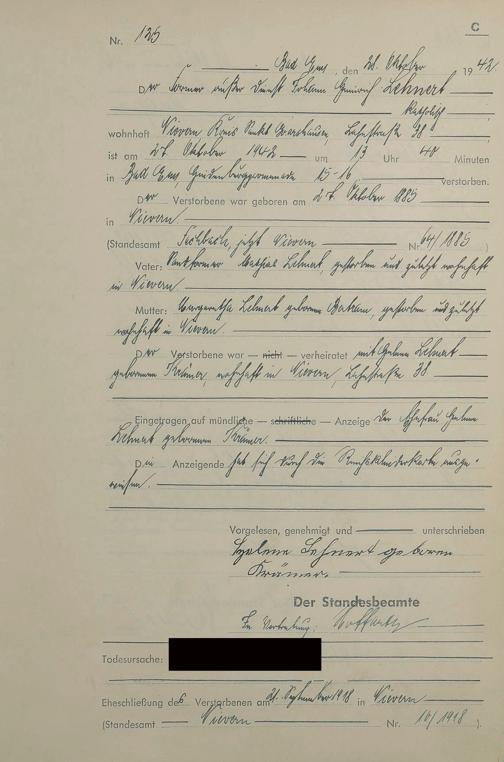 C
Nr. 125
Bad Ems, den 28. Oktober 1942
Der Former außer Dienst Johann Heinrich Lehnert
katholisch
wohnhaft Nievern Kreis Sankt Goarshausen, Lahnstraße 38
ist am 27. Oktober 1942 um 13 Uhr 40 Minuten
in Bad Ems, 15-16 verstorben.
Der Verstorbene war geboren am 27. Oktober 1885
in Nievern
(Standesamt Fachbach, jetzt Nievern Nr. 64/1885 )
Vater: Mathias Lehnert, gestorben und zuletzt wohnhaft
in Nievern
Mutter: Margaretha Lehnert geborene, gestorben und zuletzt
wohnhaft in Nievern.
Der Verstorbene war — nicht — verheiratet mit Helene Lehnert
geborenen Krämer, wohnhaft in Nievern, Lahnstraße 38.
Eingetragen auf mündliche — schriftliche — Anzeige der Ehefrau Helene
Lehnert geborenen Krämer.
Die Anzeigende hat sich durch die Reichskleiderkarte ausge-
wiesen.
Vorgelesen, genehmigt und unterschrieben
Helene Lehnert geboren
Krämer.
Der Standesbeamte
In Vertretung:
Todesursache:
Eheschließung des Verstorbenen am 21. September 1918 in Nievern
(Standesamt Nievern Nr. 10/1918 ).